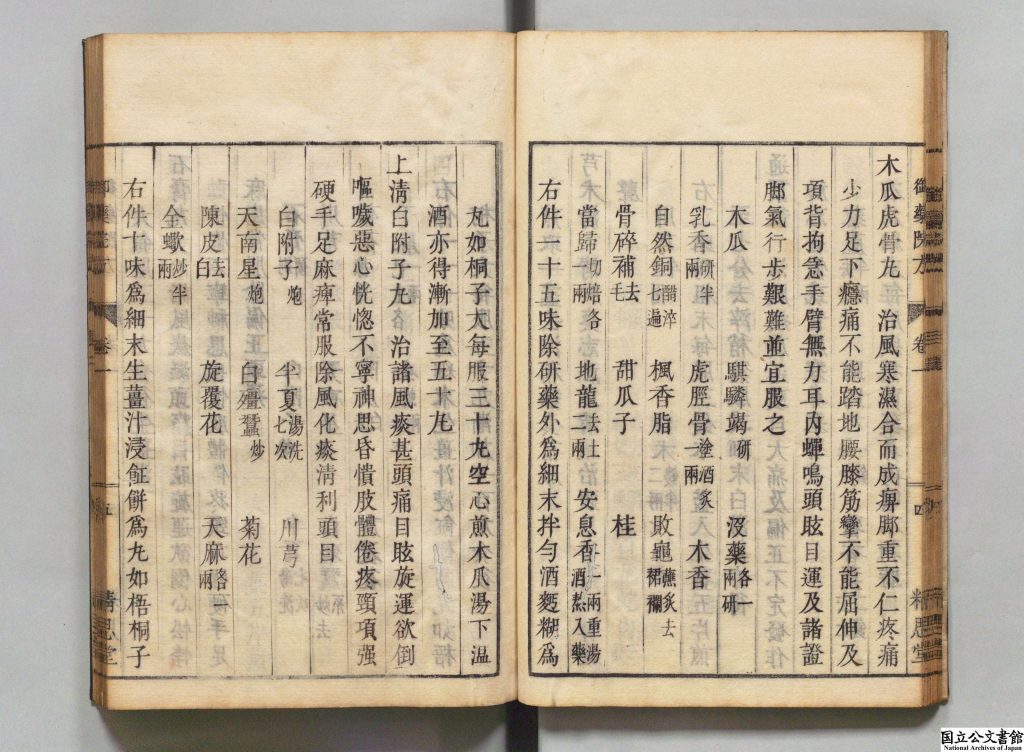 木瓜虎骨丸治風寒濕合而成痹脚重不仁疼痛
少力足下癮痛不能踏地腰膝筋攣不能屈伸及
項背拘急手臂無力耳内蟬鳴頭眩目運及諸證
脚氣行步艱難並宜服之
木瓜 騏驎竭研 沒藥各一兩研
乳香研半兩 虎脛骨塗酒炙一兩 木香
自然銅醋淬七遍 楓香脂 敗龜蘸炙去裙襴
骨碎補去毛 甜瓜子 桂
當歸切焙各一兩 地龍去土二兩 安息香一兩重湯酒熬入藥
右件一十五味除研藥外爲細末拌勻酒麪糊爲
御藥院方 卷一 四 精思堂
丸如桐子大每服三十丸空心煎木瓜湯下温
酒亦得漸加至五十丸
上清白附子丸治諸風痰甚頭痛目眩旋運欲倒
嘔噦惡心恍惚不寧神思昏憒肢體倦疼頸項强
硬手足麻痺常服除風化痰清利頭目
白附子炮 半夏湯洗七次 川芎
天南星炮 白殭蠶炒 菊花
陳皮去白 旋覆花 天麻各一兩
全蠍炒半兩
右件十味爲細末生薑汁浸蒸餅爲丸如梧桐子
御藥院方 卷一 五 精思堂
国立公文書館
National Archives of Japan